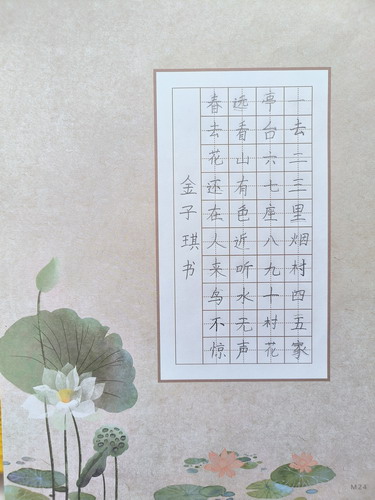 一去二三里烟村四五家
亭台六七座八九十村花
远看山有色近听水无声
春去花还在人来鸟不惊
金子琪书
M26